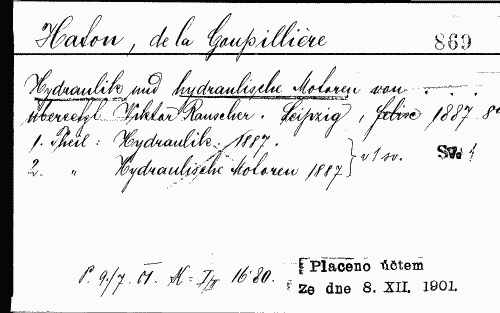 Haton, de la Goupillière 869
Hydraulik und hydraulische Motoren von . . .
übersetzt Viktor Rauscher. Leipzig, Felix 1887 8°
1. Theil: Hydraulik. 1887.
2. " Hydraulische Motoren 1887 } v 1 sv. Sv. 1
P. 9/7. 01. K = I/II 16·80.
Placeno účtem
ze dne 8. XII. 1901.